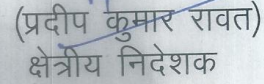 (प्रदीप कुमार रावत)
क्षेत्रीय निदेशक